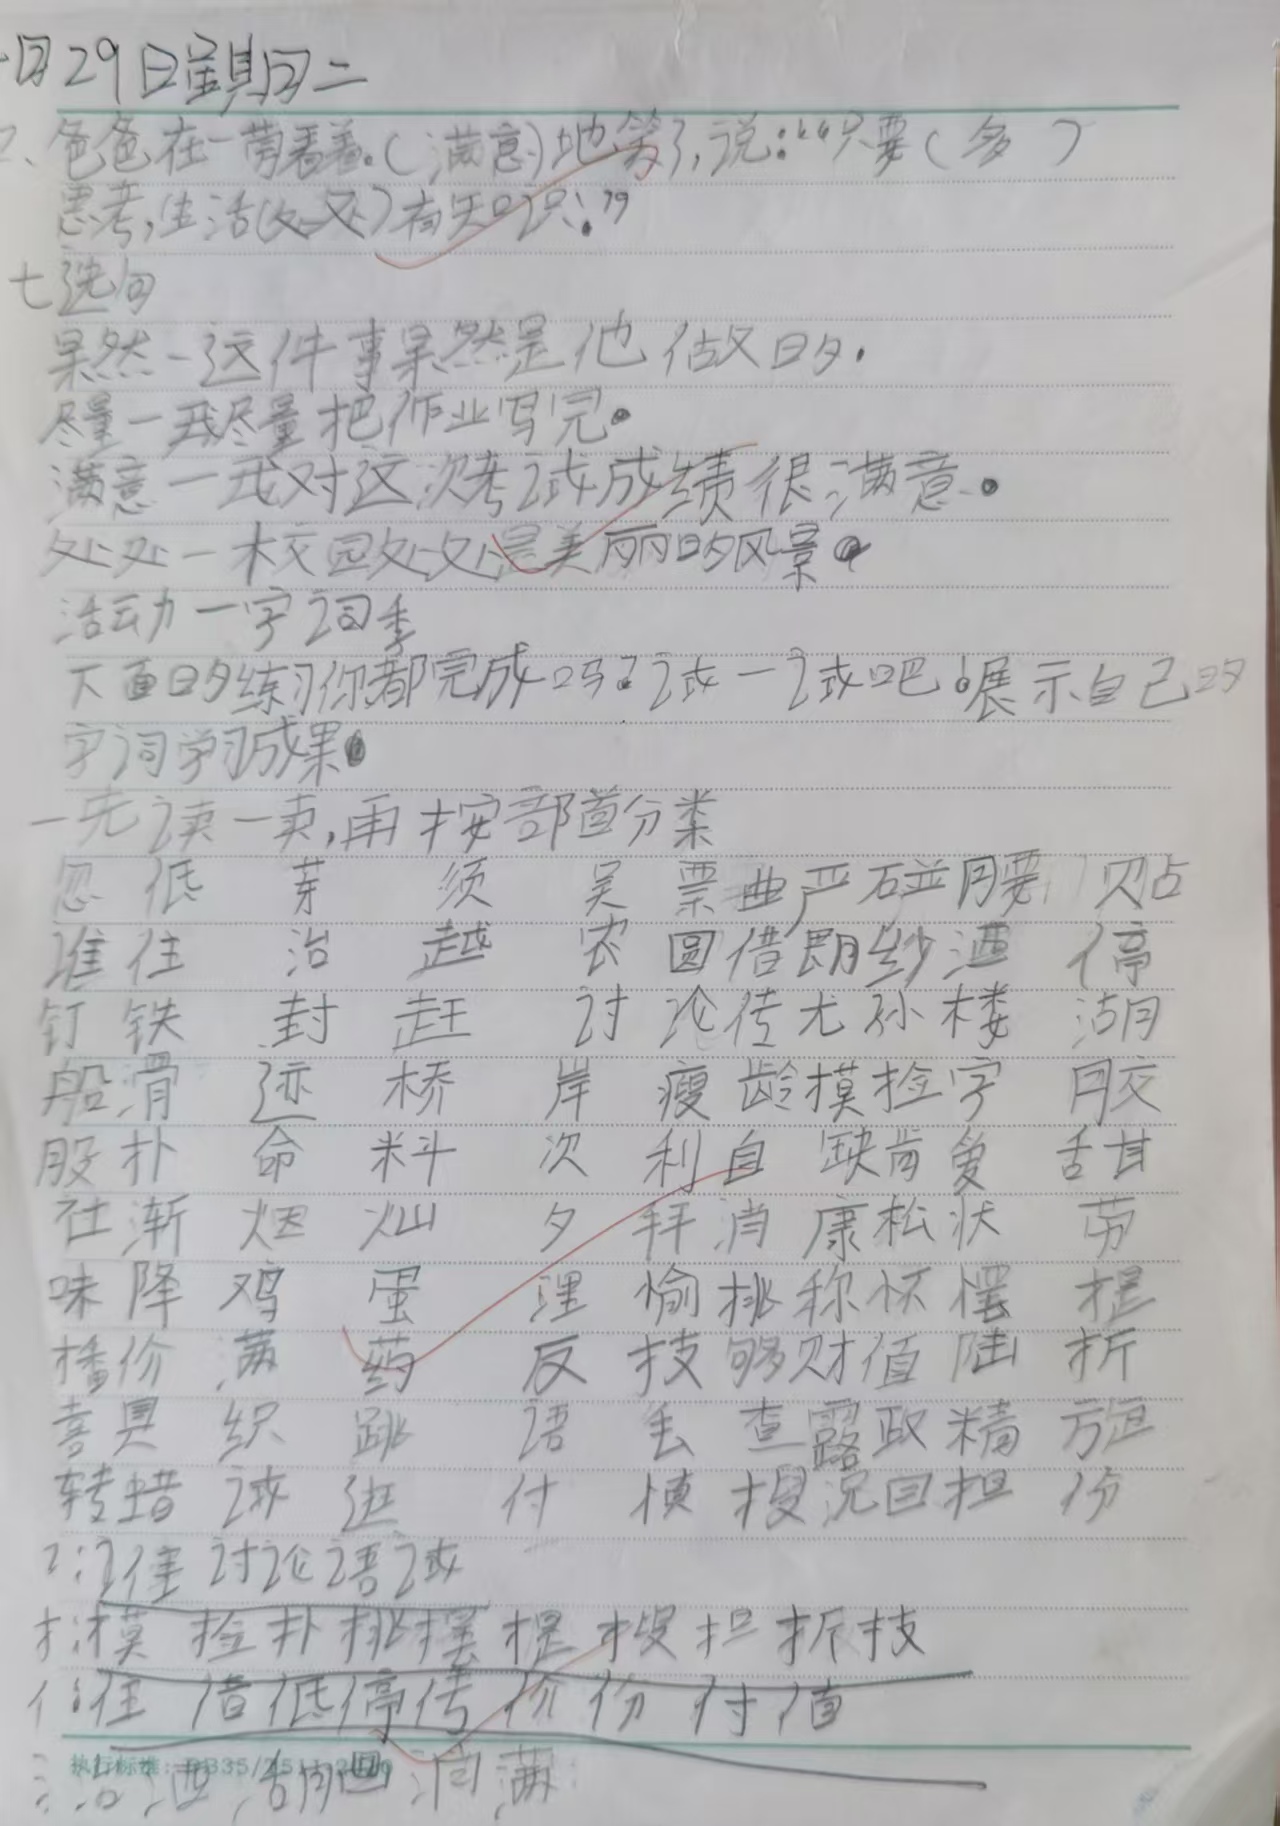 月29日星期二
2、爸爸在一旁看着。(满意)地笑了,说:“只要(多 )
思考,生活(处处)有知识!”
七选句
果然一这件事果然是他做的.
尽量一我尽量把作业写完。
满意一我对这次考试成绩很满意。
处处一校园处处是美丽的风景。
活动一字词季
下面的练习你都完成吗?试一试吧!展示自己的
字词学习成果。
一先读一卖,再按部首分类
忽 低 芽 须 吴 票 曲 严 碰 腰 贴
谁 住 治 越 农 圆 借 朗 纱 洒 停
钉 铁 封 赶 讨 论 传 尤 孙 楼 湖
船 滑 迹 桥 岸 瘦 龄 摸 捡 字 胶
股 扑 命 料 次 利 自 缺 肯 甜
社 渐 烟 灿 夕 拜 消 康 松 状 劳
味 降 鸡 蛋 理 愉 挑 称 怀 摆 提
播 价 满 药 反 技 够 财 值 陆 折
喜 具 织 跳 语 丢 查 露 取 精
转 蜡 试 进 付 慎 搜 况 回 担 份
讠:谁 讨论语试
扌:摸 捡扑挑摆 提 搜 担 折技
亻:住 借低停传 价 份 付值
氵:治 洒 湖 消 满
执行标准: